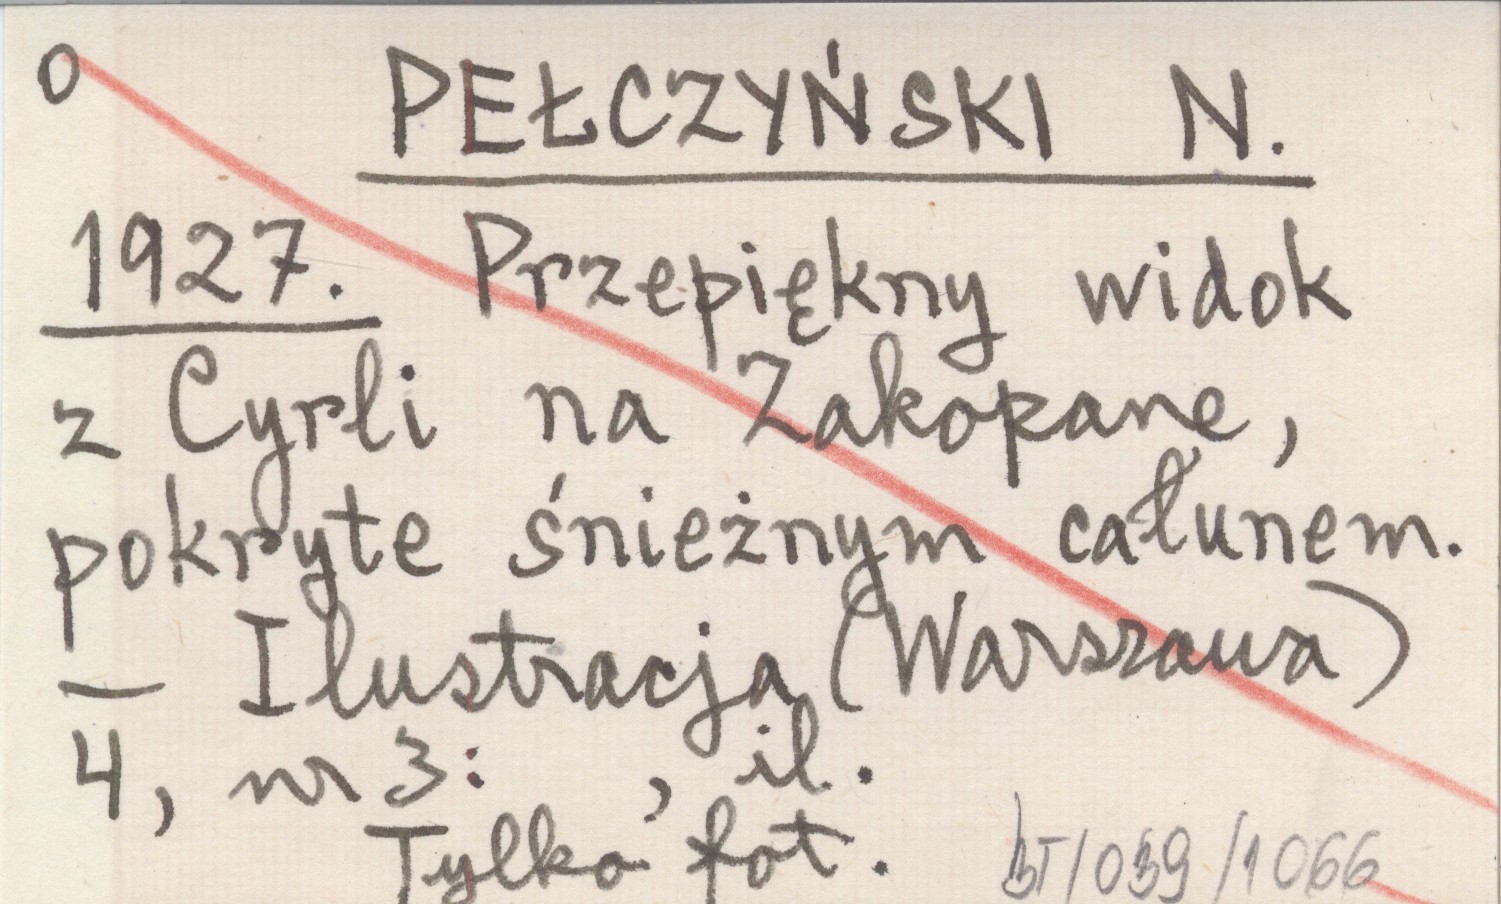 O PEŁCZYŃSKI N.
1927. Przepiękny widok
z Cyrli na Zakopane,
pokryte śnieżnym całunem.
— Ilustracja (Warszawa)
4, nr 3: , il.
Tylko fot. BT/039/1066